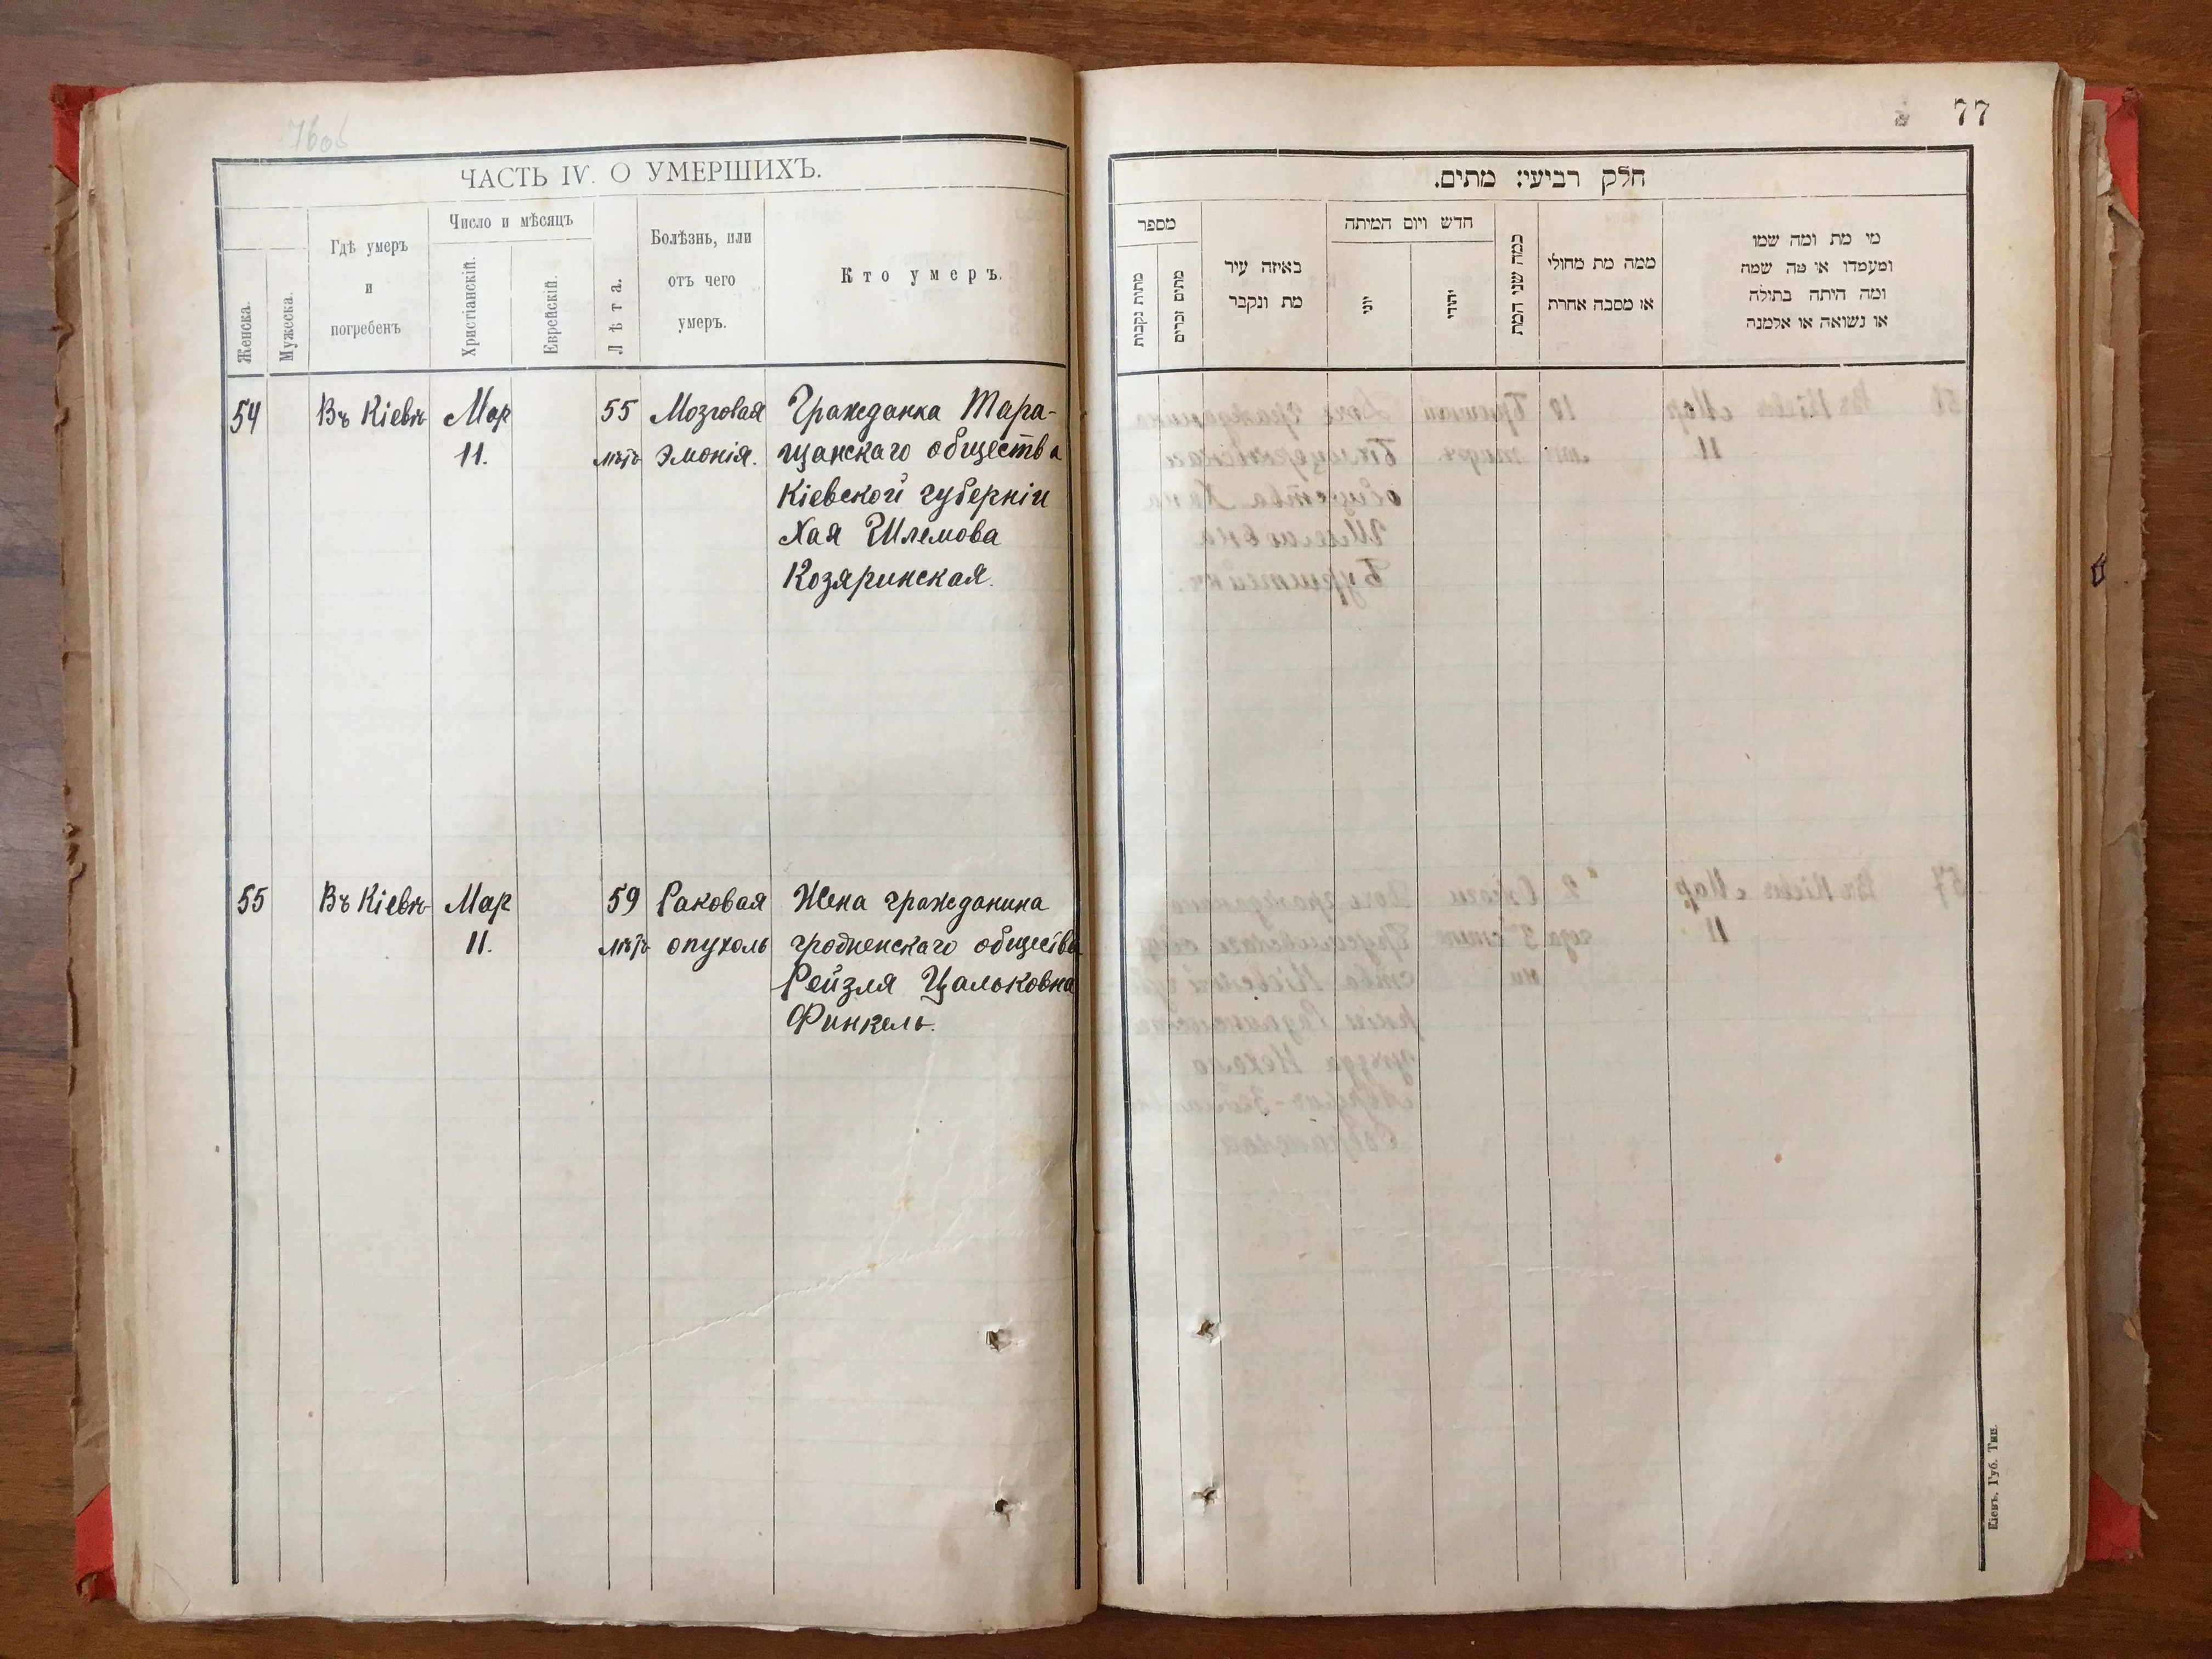 76об
ЧАСТЬ IV. О УМЕРШИХЪ.
Женска.
Мужеска.
Гдѣ умеръ
и
погребенъ
Число и мѣсяцъ
Христіанскій.
Еврейскій.
Лѣта.
Болѣзнь, или
отъ чего
умеръ.
Кто умеръ.
54 Въ Кіевѣ Мар 55 Мозговая Гражданка Тара-
11. лѣтъ эмонія. щанскаго общества
Кіевской губерніи
Хая Шлемова
Козяринская.
55 Въ Кіевѣ Мар 59 Раковая Жена гражданина
11. лѣтъ опухоль гродненскаго общества
Рейзля Цальковна
Финкель.
77
חלק רביעי: מתים.
מספר
מתות נקבות
מתים זכרים
באיזה עיר
מת ונקבר
חדש ויום המיתה
יוני
יהודי
כמה שני המת
ממה מת מחולי
או מסבה אחרת
מי מת ומה שמו
ומעמדו או מה שמה
ומה היתה בתולה
או נשואה או אלמנה
Кіевъ, Губ. Тип.